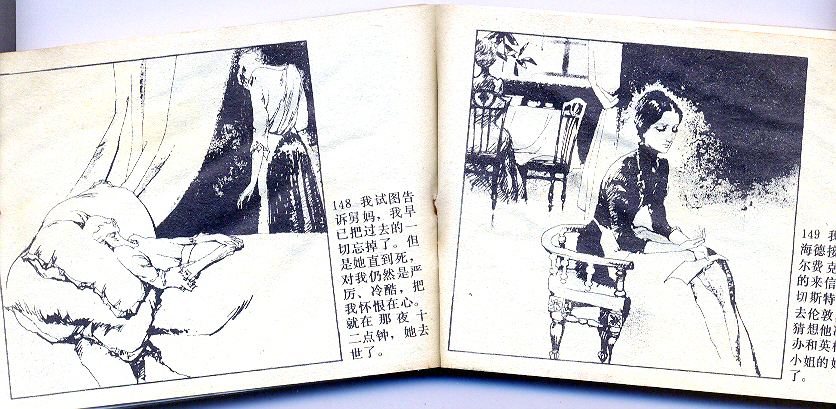 148 我试图告
诉舅妈，我早
已把过去的一
切忘掉了。但
是她直到死，
对我仍然是严
厉、冷酷，把
我怀恨在心。
就在那夜十
二点钟，她去
世了。
149 我
海德挨
尔费克
的来信
切斯特
去伦敦
猜想他
办和英格
小姐的
了。